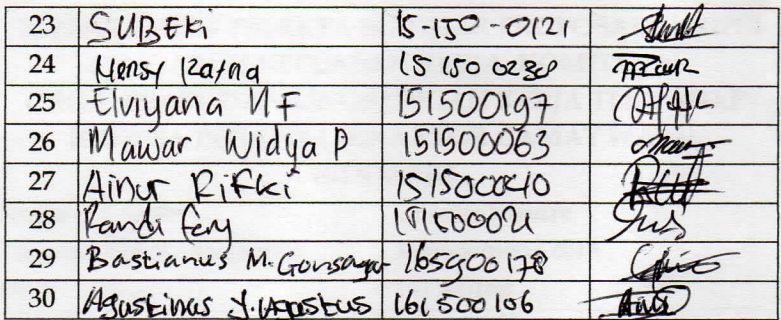 23 SUBEKi 15·150 0121
24 Hensy Ratna 15 150 0238
25 Elviyana N F 151500197
26 Mawar Widya P 151500063
27 Ainur Rifki 151500040
28 Randi fery
29 Bastianus M. Gonsagar 165900178
30 Agustinus Y. Agustus 161500106